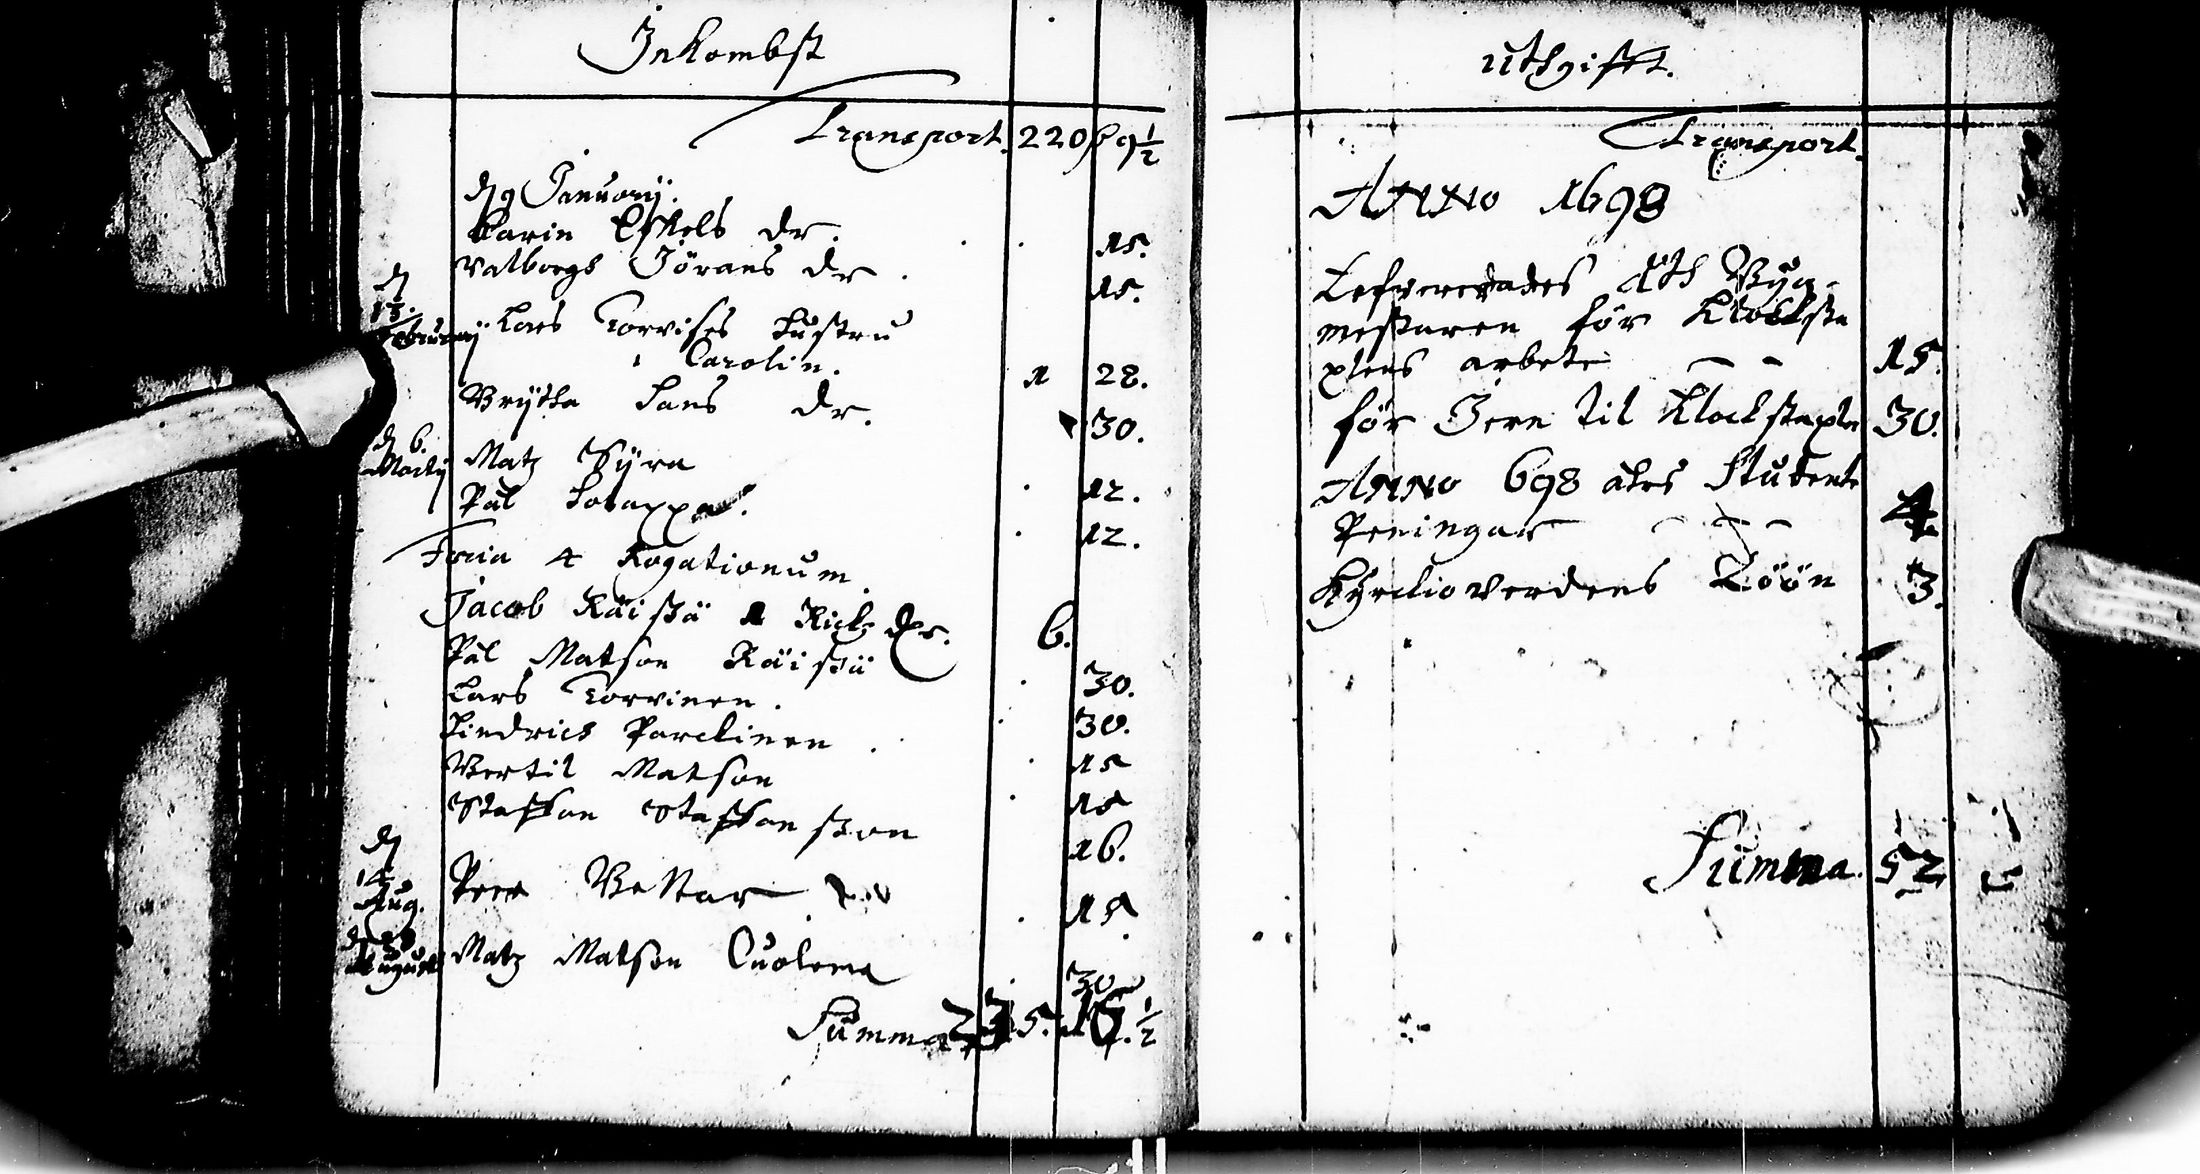 Inkombst
Transport. 220 ß 9½
d 9 Januarij.
Karin Eskels dr. 15.
Valborgs Jörans dr. 15.
d 13. Februarij Lars Torvises hustru
i Carolin. 1 28.
Brÿtha Lars dr. 30.
d 6. Martij Matz Sÿra 12.
Pål 12.
Feria 4 Rogationum.
Jacob Räisä 1 Rick dr. 6.
Pål Matson Räisä 30.
Lars Torvinen. 30.
Hindrich Parckinen. 15
Bertil Matson 15
Staffan Staffanson 16.
d 14 Aug. Peer 15.
d 28 Augusti Matz Matson Cuolema 30
Summa 235. ½
uthgifft.
Transport.
ANNO 1698
Lefvererades åth Byg-
mestaren för Klocksta
plens arbete 15.
för Jern til Klockstaplen 30.
ANNO 698 åhrs Studente
Peningar 4.
Kyrckiovердens Löön 3.
Summa. 52